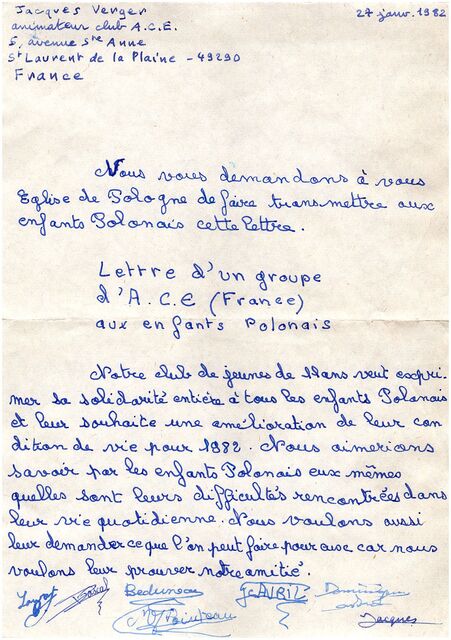 Jacques Verger
27 janv. 1982
animateur club A.C.E.
5, avenue Ste Anne
St Laurent de la Plaine - 49290
France
Nous vous demandons à vous
Eglise de Pologne de faire transmettre aux
enfants Polonais cette lettre.
Lettre d'un groupe
d'A.C.E (France)
aux enfants Polonais
Notre club de jeunes de 11ans veut expri-
mer sa solidarité entière à tous les enfants Polonais
et leur souhaite une amélioration de leur con
dition de vie pour 1982. Nous aimerions
savoir par les enfants Polonais eux mêmes
quelles sont leurs difficultés rencontrées dans
leur vie quotidienne. Nous voulons aussi
leur demander ce que l'on peut faire pour eux car nous
voulons leur prouver notre amitié.
Beduneau
JC AVRIL
Dominique
Pascal
Jacques